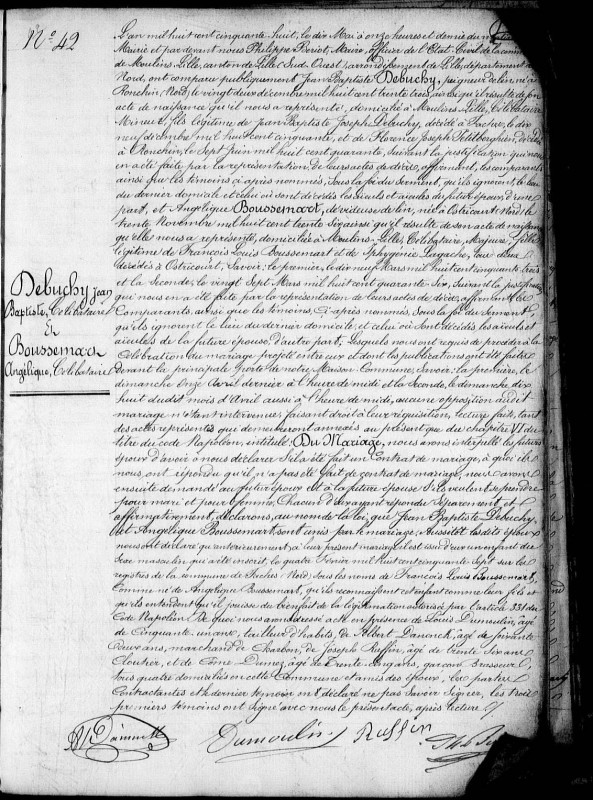 N.° 42
Debuchy Jean
Baptiste, Célibataire
Et
Boussemart
Angélique, Célibataire
L'an mil huit cent cinquante huit, le dix Mai à onze heures et demie du
Mairie et par devant nous Philippe Meire, officier de l'Etat-Civil de la
de Moulins-Lille, canton de Lille (Sud-Ouest) arrondissement de Lille, département du
Nord, ont comparu publiquement Jean Baptiste Debuchy, peigneur de lin, né à
Ronchin (Nord) le vingt deux décembre mil huit cent trente trois ainsi qu'il résulte de son
acte de naissance qu'il nous a représenté, domicilié à Moulins-Lille, Célibataire
fils légitime de Jean Baptiste Joseph Debuchy, décédé à Faches, le dix
neuf décembre mil huit cent cinquante, et de Florence Joseph
à Ronchin, le Sept juin mil huit cent quarante, suivant la justification qui nous
en a été faite par la représentation de leurs actes de décès, affirmant, les comparants
ainsi que les témoins ci-après nommés, sous la foi du Serment, qu'ils ignorent, le lieu
du dernier domicile et celui où sont décédés les aïeuls et aïeules du futur époux, d'une
part, et Angélique Boussemart, dévideuse de lin, née à Ostricourt (Nord) le
trente Novembre mil huit cent trente Six ainsi qu'il résulte de son acte de naissance
qu'elle nous a représenté, domiciliée à Moulins-Lille, Célibataire, Majeure, fille
légitime de François Louis Boussemart et de Iphygénie Lagache, tous deux
décédés à Ostricourt, Savoir: le premier, le dix neuf Mars mil huit cent cinquante trois
et la Seconde, le vingt Sept Mars mil huit cent quarante Six, Suivant la justification
qui nous en a été faite par la représentation de leurs actes de décès, affirmant les
Comparants, ainsi que les témoins, ci-après nommés, Sous la foi du Serment,
qu'ils ignorent le lieu du dernier domicile, et celui où Sont décédés les aïeuls et
aïeules de la future épouse, d'autre part, Lesquels nous ont requis de procéder à la
Célébration du mariage projeté entre eux et dont les publications ont été faites
devant la principale porte de notre Maison Commune, Savoir: la première, le
dimanche Onze Avril dernier à l'heure de midi et la Seconde, le dimanche dix
huit dudit mois d'Avril aussi à l'heure de midi, aucune opposition audit
mariage n'étant intervenue, faisant droit à leur réquisition, lecture faite, tant
des actes représentés qui demeureront annexés au présent que du chapitre VI du
titre du code Napoléon, intitulé: Du Mariage, nous avons interpellé les futurs
époux d'avoir à nous déclarer S'il a été fait un Contrat de mariage, à quoi ils
nous ont répondu qu'il n'a pas été fait de contrat de mariage, nous avons
ensuite demandé au futur époux et à la future épouse S'ils veulent se prendre
pour mari et pour femme, Chacun d'eux ayant répondu Séparément et
affirmativement, déclarons, au nom de la loi, que Jean Baptiste Debuchy,
et Angélique Boussemart, sont unis par le mariage; Aussitôt lesdits époux
nous ont déclaré qu'antérieurement à leur présent mariage il est issu d'eux un enfant du
Sexe masculin qui a été inscrit, le quatre Février mil huit cent cinquante Sept sur les
registres de la commune de Faches (Nord) Sous les noms de François Louis Boussemart,
Comme né de Angélique Boussemart, qu'ils reconnaissent cet enfant comme leur fils et
qu'ils entendent qu'il jouisse du bienfait de la légitimation autorisée par l'article 331 du
Code Napoléon. De quoi nous avons dressé acte en présence de Louis Dumoulin, âgé
de Cinquante un ans, tailleur d'habits, de Albert âgé de soixante
deux ans, marchand de Charbon, de Joseph Ruffin, âgé de trente six ans
Cloutier, et de Côme Dumez, âgé de trente ans, garçon brasseur,
tous quatre domiciliés en cette Commune et amis des époux, les parties
Contractantes et le dernier témoin ont déclaré ne pas Savoir Signer, les trois
premiers témoins ont Signé avec nous le présent acte, après lecture.
Dumoulin Ruffin